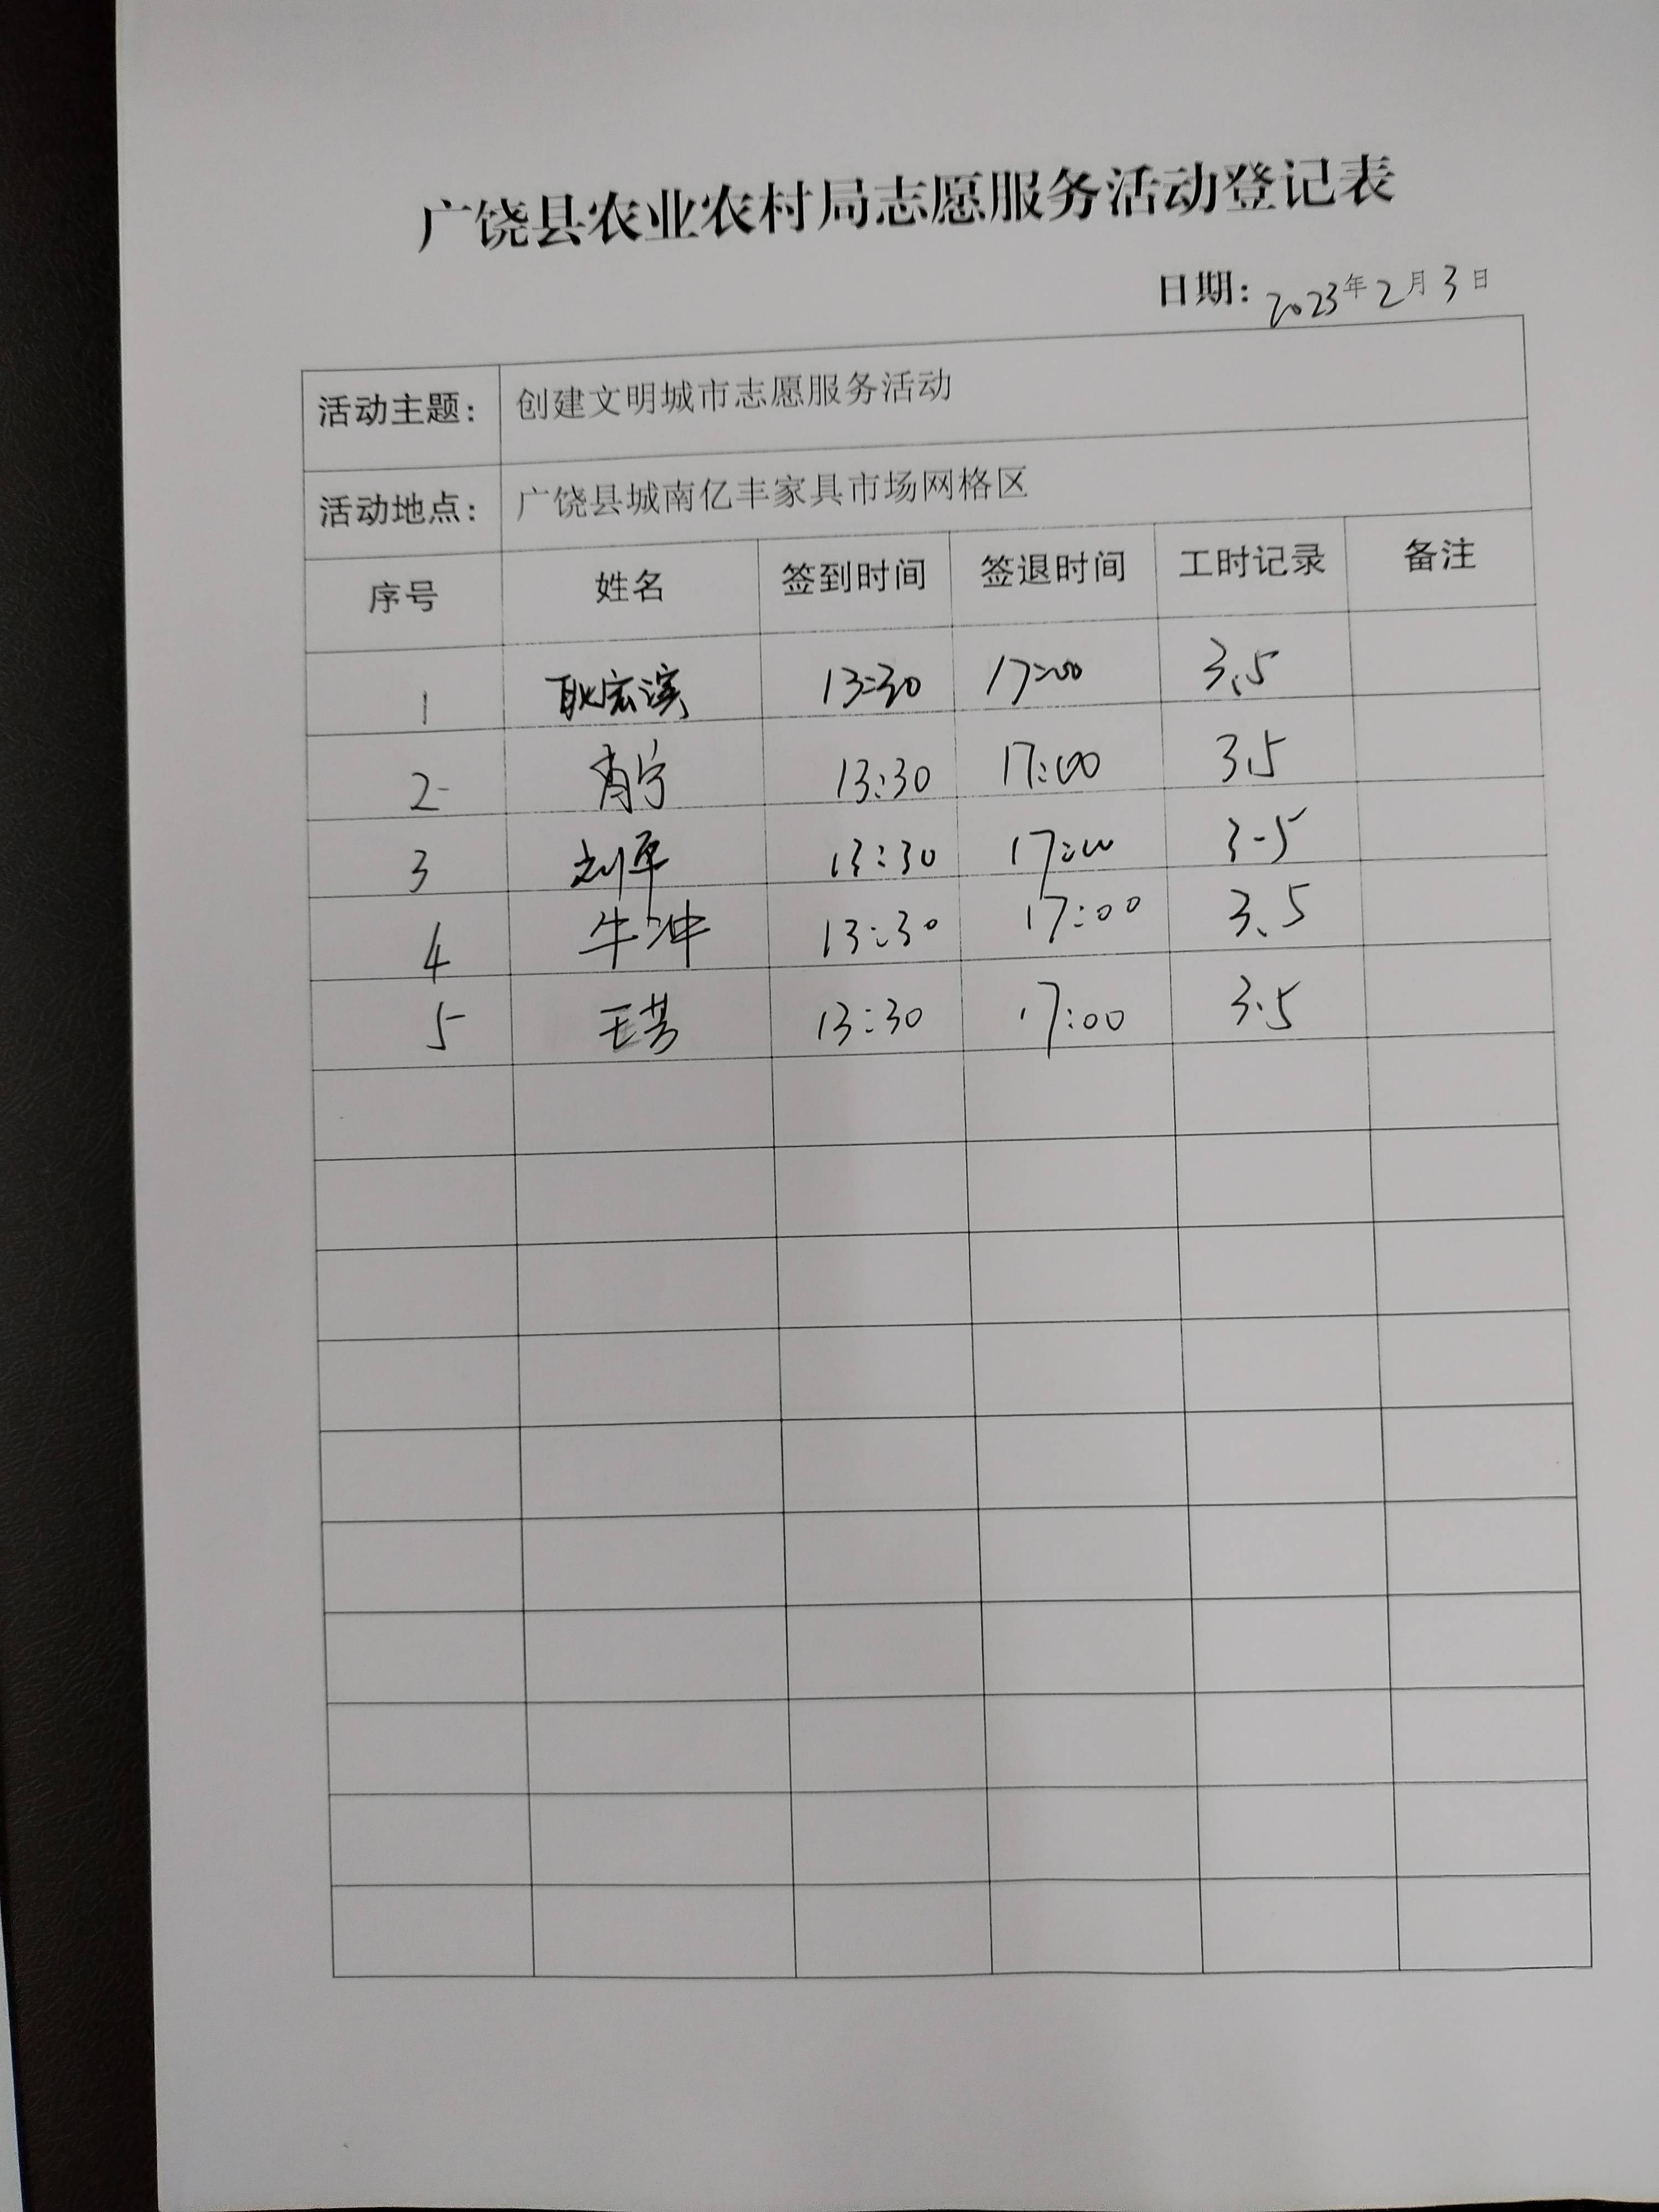 广饶县农业农村局志愿服务活动登记表
日期: 2023年2月3日
活动主题: 创建文明城市志愿服务活动
活动地点: 广饶县城南亿丰家具市场网格区
序号 姓名 签到时间 签退时间 工时记录 备注
1 耿宏滨 13:30 17:00 3.5
2 肖宁 13:30 17:00 3.5
3 13:30 17:00 3.5
4 牛冲 13:30 17:00 3.5
5 王芳 13:30 17:00 3.5